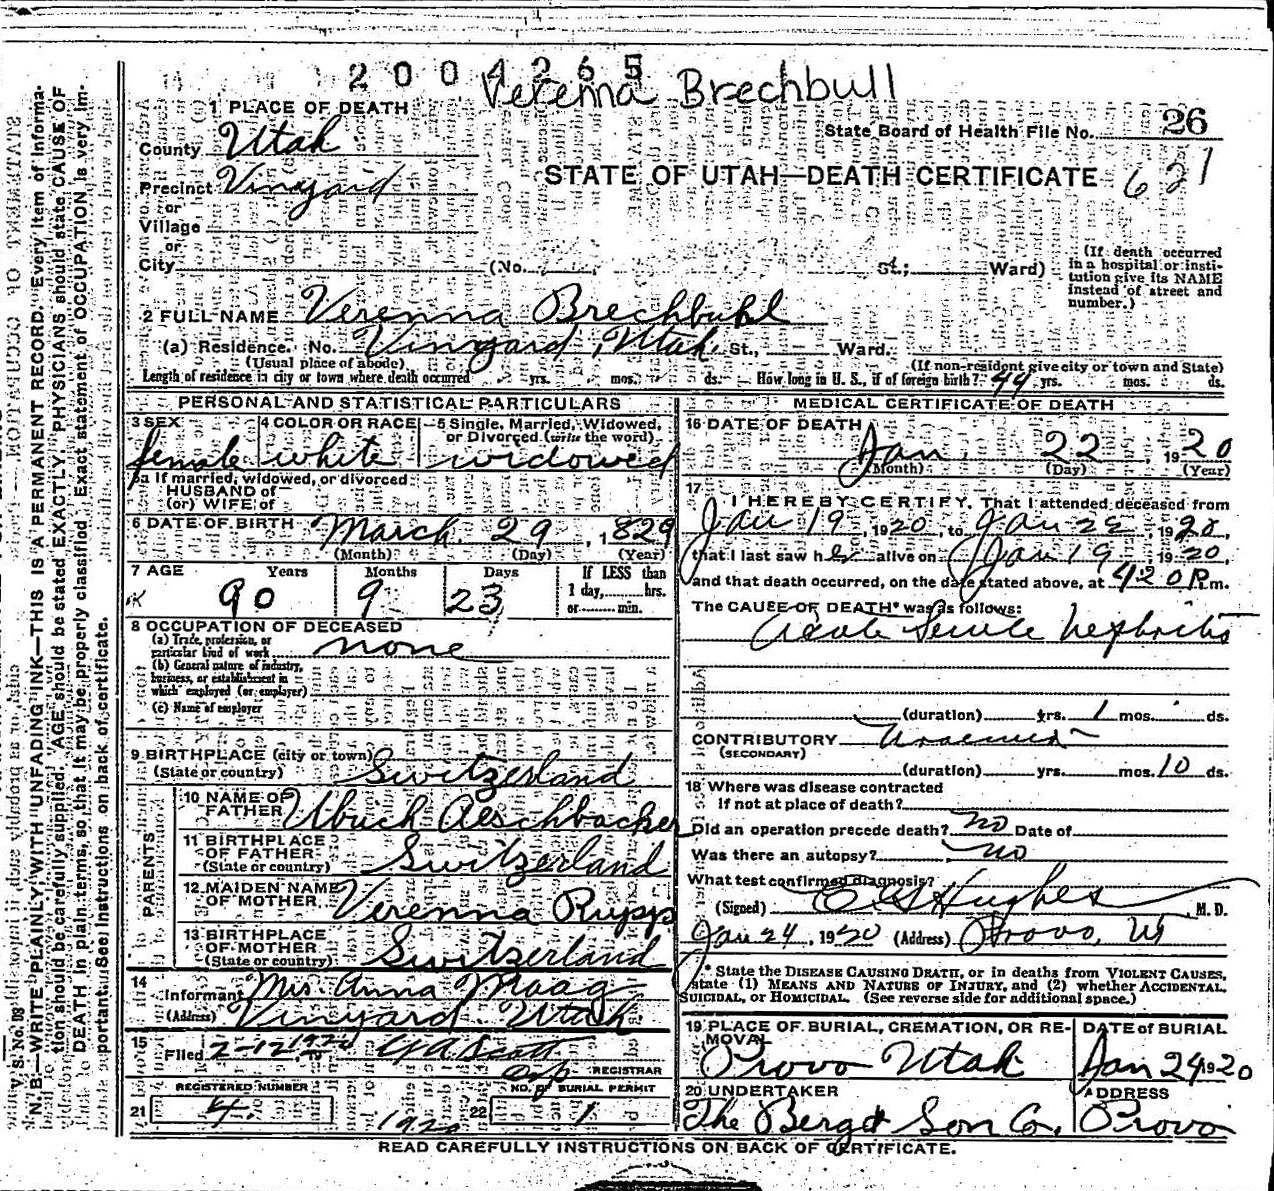 2004265
Verenna Brechbull
1 PLACE OF DEATH
State Board of Health File No. 26
County Utah
STATE OF UTAH—DEATH CERTIFICATE 621
Precinct Vinyard
or
Village
or
City (No. St.; Ward)
(If death occurred
in a hospital or insti-
tution give its NAME
instead of street and
number.)
2 FULL NAME Verenna Brechbuhl
(a) Residence. No. Vinyard, Utah St., Ward.
(Usual place of abode) (If non-resident give city or town and State)
Length of residence in city or town where death occurred yrs. mos. ds. How long in U. S., if of foreign birth? 44 yrs. mos. ds.
PERSONAL AND STATISTICAL PARTICULARS
3 SEX female
4 COLOR OR RACE white
5 Single, Married, Widowed,
or Divorced (write the word)
widowed
5a If married, widowed, or divorced
HUSBAND of
(or) WIFE of
6 DATE OF BIRTH March 29, 1829
(Month) (Day) (Year)
7 AGE Years Months Days If LESS than
90 9 23 1 day, hrs.
or min.
8 OCCUPATION OF DECEASED
(a) Trade, profession, or
particular kind of work none
(b) General nature of industry,
business, or establishment in
which employed (or employer)
(c) Name of employer
9 BIRTHPLACE (city or town)
(State or country) Switzerland
PARENTS
10 NAME OF
FATHER Ubuch Aeschbacher
11 BIRTHPLACE
OF FATHER
(State or country) Switzerland
12 MAIDEN NAME
OF MOTHER Verenna Rupp
13 BIRTHPLACE
OF MOTHER
(State or country) Switzerland
14
Informant Mrs. Anna Maag
(Address) Vinyard Utah
15
Filed 2-12 1920 G A Scott
Dep REGISTRAR
REGISTERED NUMBER NO. of BURIAL PERMIT
21 4. 22 1
1920
MEDICAL CERTIFICATE OF DEATH
16 DATE OF DEATH
Jan. 22, 1920
(Month) (Day) (Year)
17
I HEREBY CERTIFY, That I attended deceased from
Jan 19, 1920, to Jan 22, 1920,
that I last saw her alive on Jan 19, 1920,
and that death occurred, on the date stated above, at 420 P.m.
The CAUSE OF DEATH* was as follows:
Acute Senile Nephritis
(duration) yrs. 1 mos. ds.
CONTRIBUTORY Uraemia
(SECONDARY)
(duration) yrs. mos. 10 ds.
18 Where was disease contracted
If not at place of death?
Did an operation precede death? no Date of
Was there an autopsy? no
What test confirmed diagnosis?
(Signed) E G Hughes, M. D.
Jan 24, 1920 (Address) Provo, Ut
* State the DISEASE CAUSING DEATH, or in deaths from VIOLENT CAUSES,
state (1) MEANS AND NATURE OF INJURY, and (2) whether ACCIDENTAL,
SUICIDAL, or HOMICIDAL. (See reverse side for additional space.)
19 PLACE OF BURIAL, CREMATION, OR RE-
MOVAL Provo Utah
DATE of BURIAL
Jan 24 1920
20 UNDERTAKER
The Berg & Son Co.
ADDRESS
Provo
READ CAREFULLY INSTRUCTIONS ON BACK OF CERTIFICATE.
V. S. No. 98
N. B.—WRITE PLAINLY WITH UNFADING INK—THIS IS A PERMANENT RECORD. Every item of informa-
tion should be carefully supplied. AGE should be stated EXACTLY. PHYSICIANS should state CAUSE OF
DEATH in plain terms, so that it may be properly classified. Exact statement of OCCUPATION is very im-
portant. See instructions on back of certificate.